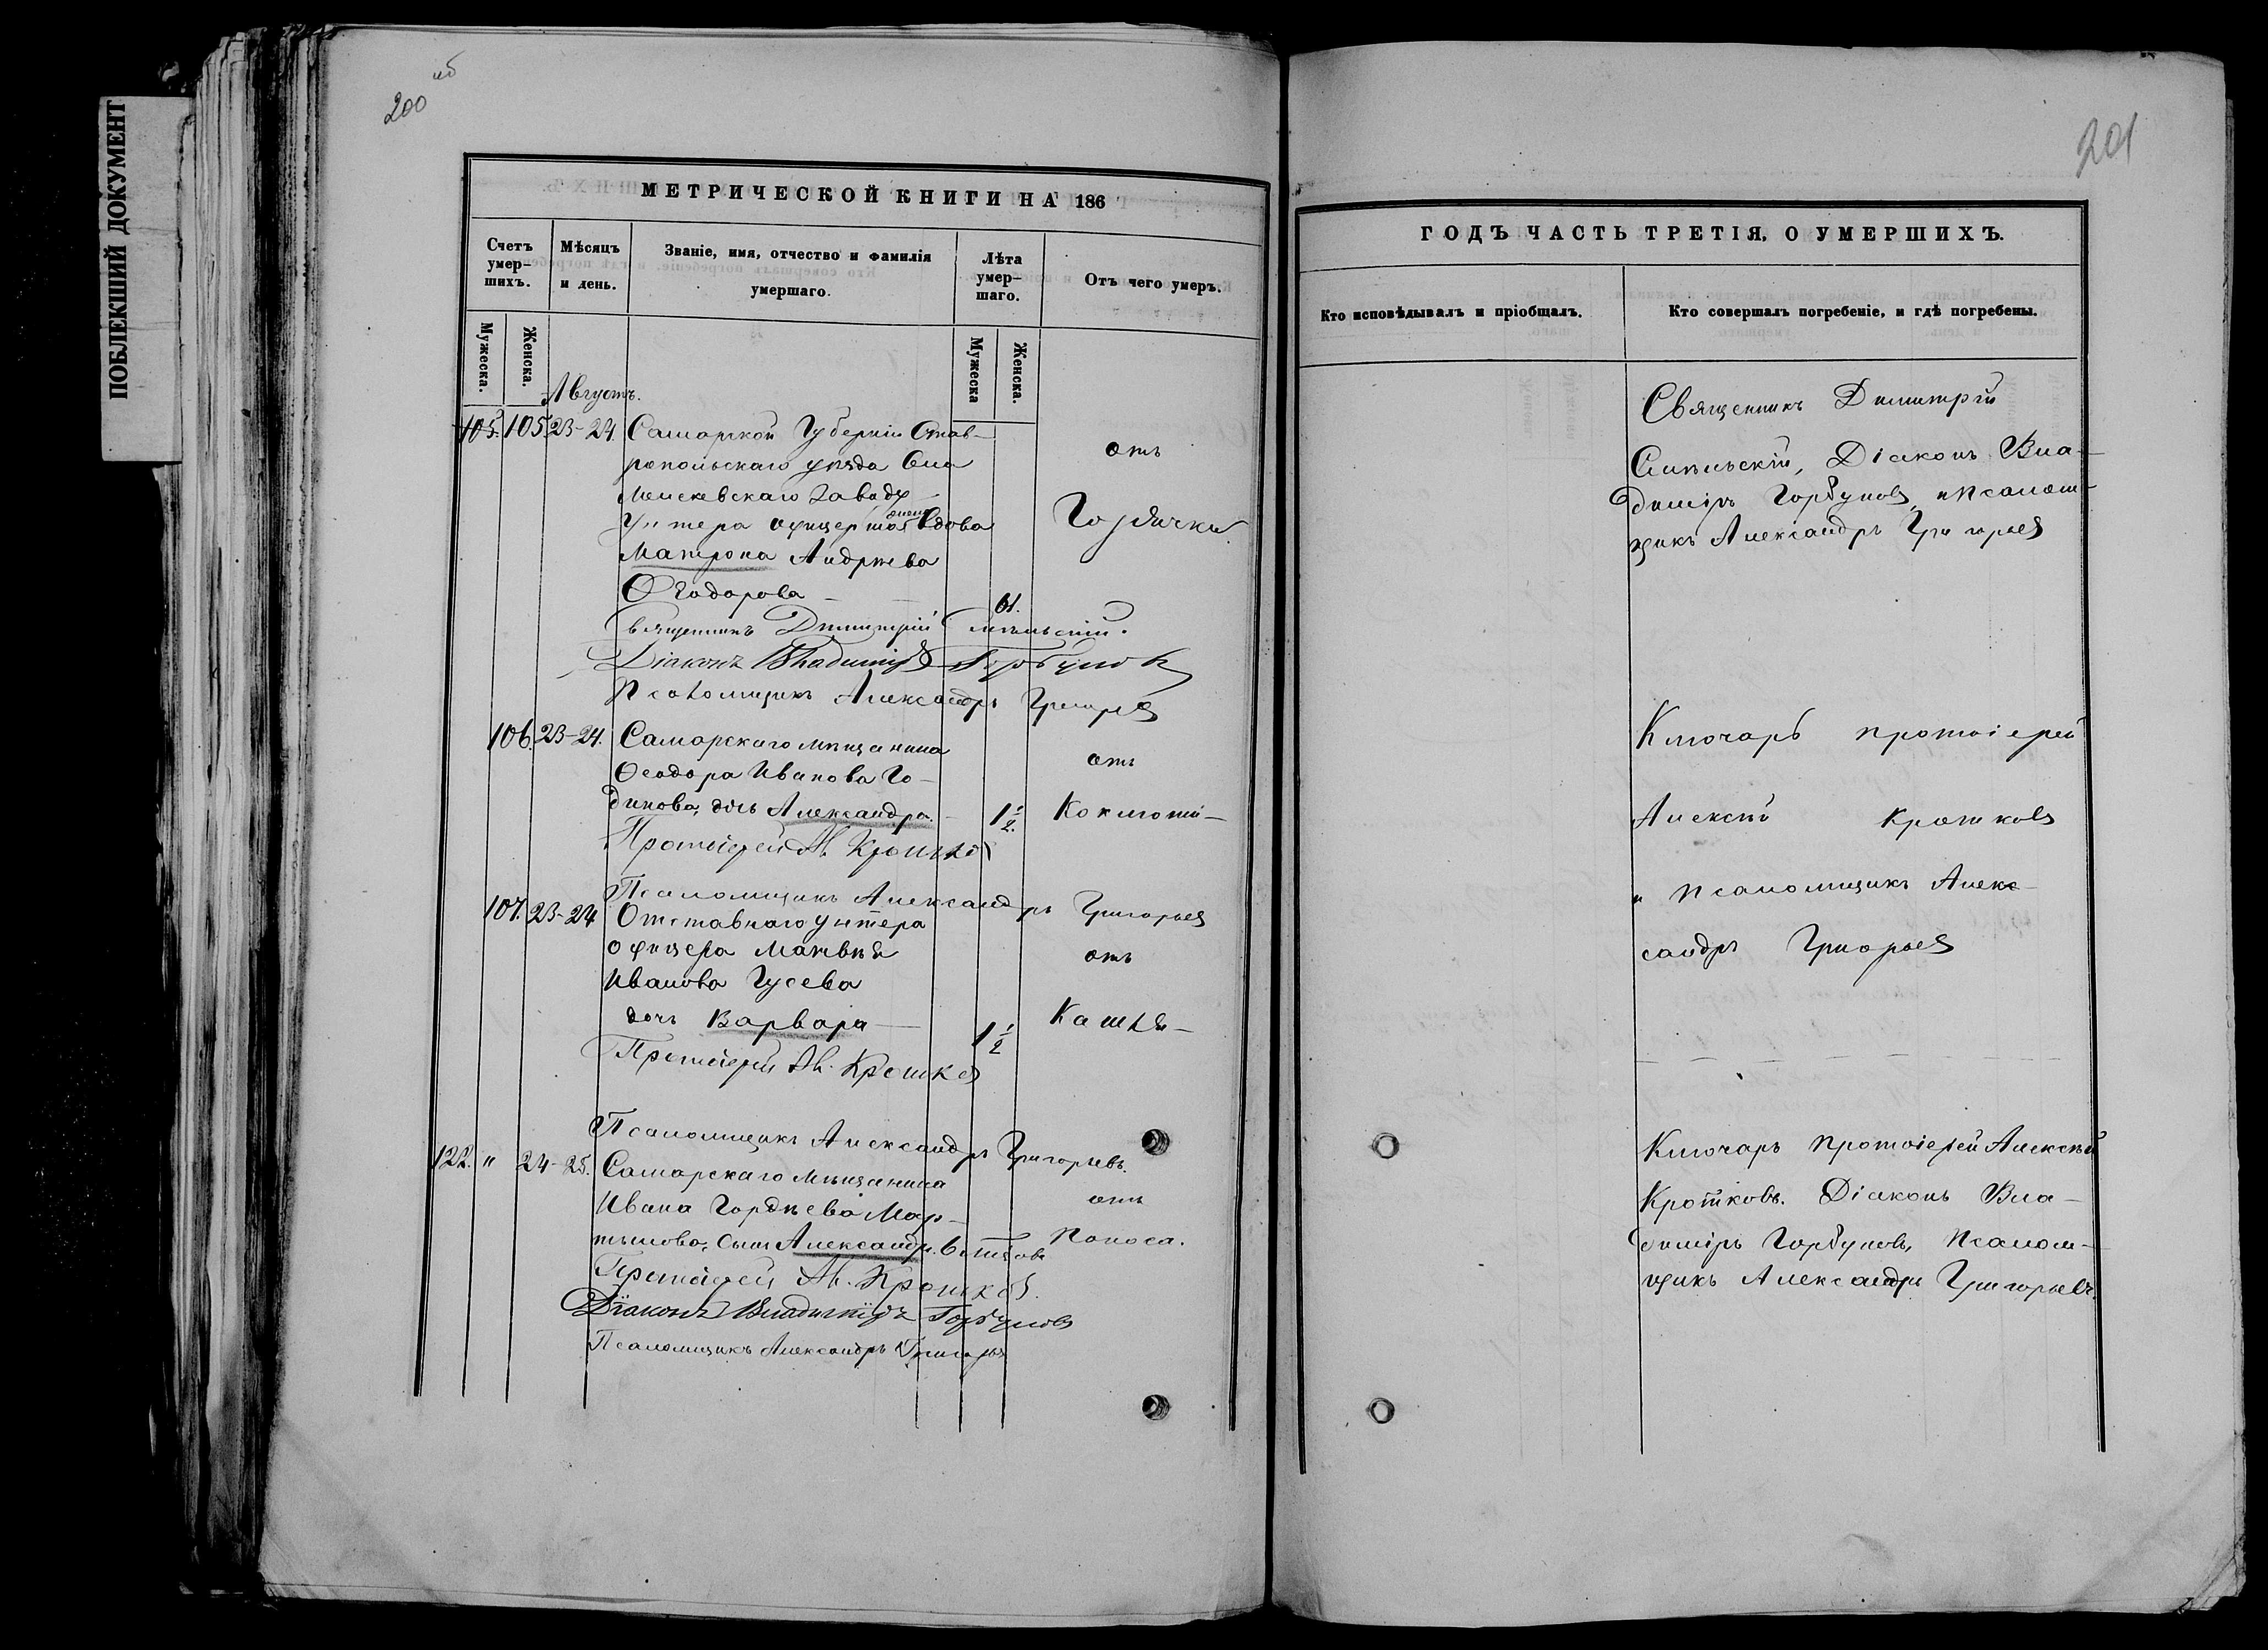 ПОБЛЕКШИЙ ДОКУМЕНТ
200 об
МЕТРИЧЕСКОЙ КНИГИ НА 186
Счетъ умер-
шихъ.
Мѣсяцъ
и день.
Званіе, имя, отчество и фамилія
умершаго.
Лѣта
умер-
шаго.
Отъ чего умеръ.
Мужеска.
Женска.
Мужеска
Женска.
Августъ.
105. 105. 23-24. Самарской Губерніи Став-
ропольскаго уѣзда
завода
Унтера офицерша вдова
Матрона Андреева
Ѳеодорова 61.
отъ
Горячки
Священникъ Димитрій
Діаконъ Владимiръ Горбуновъ
Псаломщикъ Александръ Григорьевъ
106. 23-24. Самарскаго мѣщанина
Ѳеодора Иванова Го-
динова, дочь Александра. 1 1/2.
отъ
Коклюша
Протоіерей Ал. Кротковъ
Псаломщикъ Александръ Григорьевъ
107. 23-24 Отставнаго унтера
офицера Матвѣя
Иванова Гусева
дочь Варвара 1 1/2
отъ
Кашля
Протоіерей Ал. Кротковъ
Псаломщикъ Александръ Григорьевъ.
122. " 24-25. Самарскаго мѣщанина
Ивана Гордѣева Мар-
тынова, сынъ Александръ. 6
отъ
Поноса.
Протоіерей Ал. Кротковъ.
Діаконъ Владимiръ Горбуновъ
Псаломщикъ Александръ Григорьевъ
201
ГОДЪ ЧАСТЬ ТРЕТІЯ, О УМЕРШИХЪ.
Кто исповѣдывалъ и пріобщалъ.
Кто совершалъ погребеніе, и гдѣ погребены.
Священникъ Димитрій
Діаконъ Вла-
димiръ Горбуновъ, и Псалом-
щикъ Александръ Григорьевъ
Ключарь протоіерей
Алексѣй Кротковъ
и Псаломщикъ Алек-
сандръ Григорьевъ
Ключарь протоіерей Алексѣй
Кротковъ. Діаконъ Вла-
димiръ Горбуновъ, Псалом-
щикъ Александръ Григорьевъ.